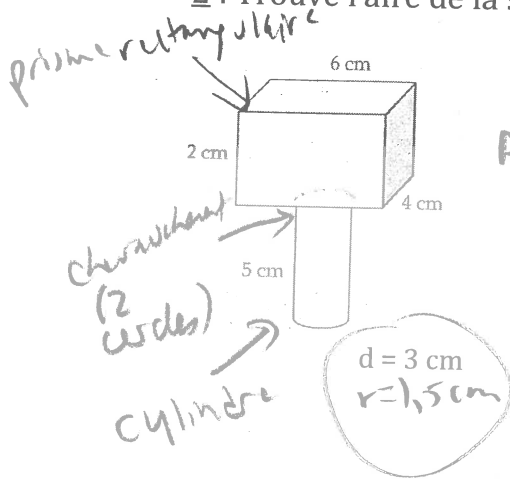 : Trouve l'aire de la
prisme rectangulaire
6 cm
2 cm
4 cm
chevauchement
(2
cercles)
5 cm
cylindre
d = 3 cm
r=1,5 cm